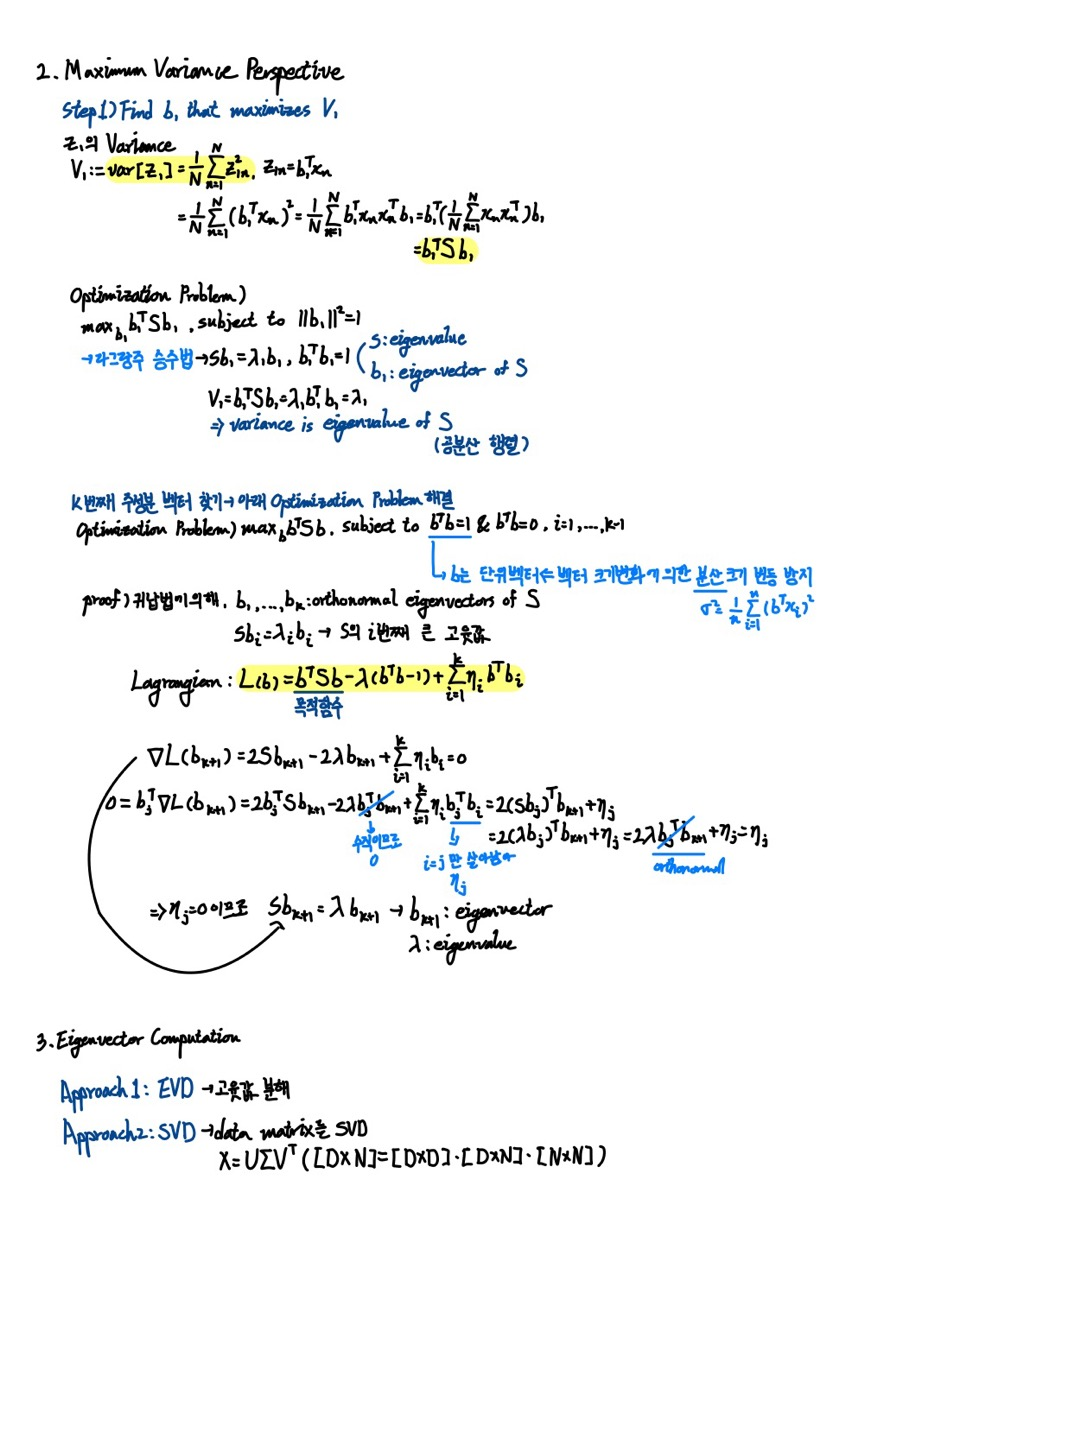 2. Maximum Variance Perspective
Step 1) Find b₁ that maximizes V₁
z₁의 Variance
V₁ := var[z₁] = 1/N Σ_{n=1}^{N} z²₁ₙ, z₁ₙ = b₁ᵀxₙ
= 1/N Σ_{n=1}^{N} (b₁ᵀxₙ)² = 1/N Σ_{n=1}^{N} b₁ᵀxₙxₙᵀb₁ = b₁ᵀ(1/N Σ_{n=1}^{N} xₙxₙᵀ)b₁
= b₁ᵀSb₁
Optimization Problem)
max_{b₁} b₁ᵀSb₁, subject to ||b₁||² = 1
→ 라그랑주 승수법 → Sb₁ = λ₁b₁, b₁ᵀb₁ = 1 ( S: eigenvalue
b₁: eigenvector of S
V₁ = b₁ᵀSb₁ = λ₁b₁ᵀb₁ = λ₁
⇒ variance is eigenvalue of S
(공분산 행렬)
K번째 주성분 벡터 찾기 → 아래 Optimization Problem 해결
Optimization Problem) max_b bᵀSb, subject to bᵀb=1 & bᵀb=0, i=1,...,k-1
↳ b는 단위벡터 ⇐ 벡터 크기변화에 의한 분산 크기 변동 방지
σ² = 1/n Σ_{i=1}^{n} (bᵀxᵢ)²
proof) 귀납법에 의해, b₁,...,bₖ: orthonormal eigenvectors of S
Sbᵢ = λᵢbᵢ → S의 i번째 큰 고윳값
Lagrangian: L(b) = bᵀSb - λ(bᵀb-1) + Σ_{i=1}^{k} ηᵢbᵀbᵢ
목적함수
∇L(bₖ₊₁) = 2Sbₖ₊₁ - 2λbₖ₊₁ + Σ_{i=1}^{k} ηᵢbᵢ = 0
0 = bⱼᵀ∇L(bₖ₊₁) = 2bⱼᵀSbₖ₊₁ - 2λbⱼᵀbₖ₊₁ + Σ_{i=1}^{k} ηᵢbⱼᵀbᵢ = 2(Sbⱼ)ᵀbₖ₊₁ + ηⱼ
= 2(λbⱼ)ᵀbₖ₊₁ + ηⱼ = 2λbⱼᵀbₖ₊₁ + ηⱼ = ηⱼ
수직이므로
0
i=j 만 살아남아
ηⱼ
orthonormal
⇒ ηⱼ=0 이므로 Sbₖ₊₁ = λbₖ₊₁ → bₖ₊₁: eigenvector
λ: eigenvalue
3. Eigenvector Computation
Approach 1: EVD → 고윳값 분해
Approach2: SVD → data matrix를 SVD
X = UΣVᵀ ([D×N] = [D×D]·[D×N]·[N×N])